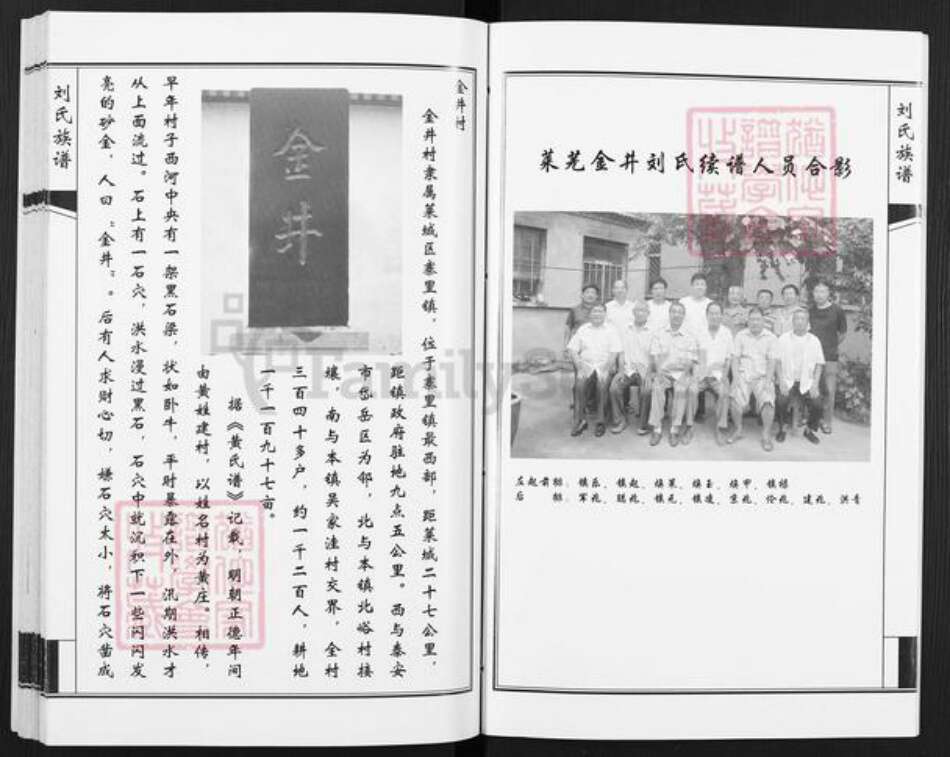 刘氏族谱
莱芜金井刘氏续谱人员合影
左起前排：镇乐、镇起、焕莱、焕玉、焕甲、镇禄
后　　排：军兆、聪兆、镇元、镇凌、京兆、伦兆、建兆、洪青
金井村
金井村隶属莱城区寨里镇，位于寨里镇最西部，距莱城二十七公里，
距镇政府驻地九点五公里。西与泰安
市岱岳区为邻，北与本镇北峪村接
壤，南与本镇吴家洼村交界，全村
三百四十多户，约一千二百人，耕地
一千一百九十七亩。
据《黄氏谱》记载，明朝正德年间
由黄姓建村，以姓名村为黄庄。相传，
早年村子西河中央有一架黑石梁，状如卧牛，平时暴露在外，汛期洪水才
从上面流过。石上有一石穴，洪水漫过黑石，石穴中就沉积下一些闪闪发
亮的砂金，人曰：“金井”。后有人求财心切，嫌石穴太小，将石穴凿成
金井
刘氏族谱
FamilySearch